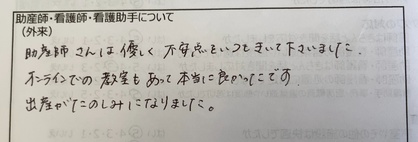 助産師・看護師・看護助手について
(外来)
助産師さんは優しく不安点といつもきいて下さいました。
オンラインでの教室もあって本当に良かったです。
出産がたのしみになりました。